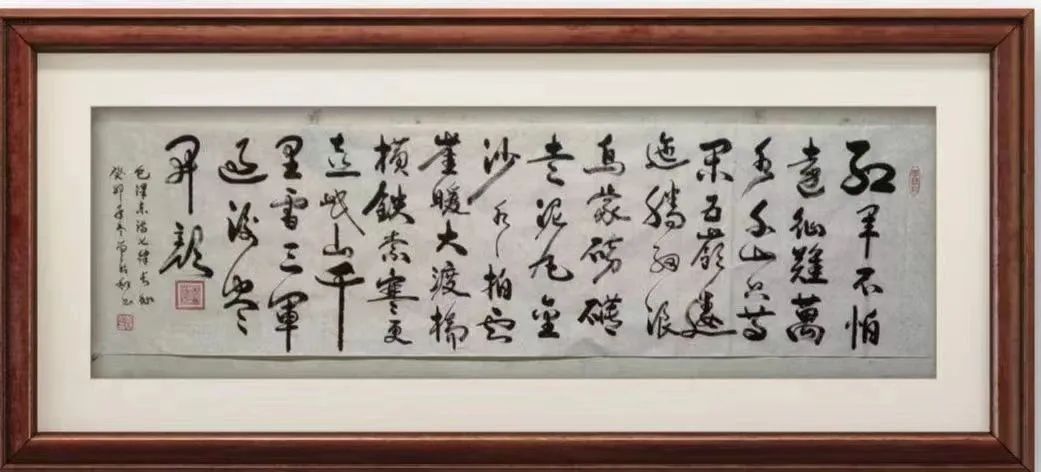 红军不怕
遠征難萬
水千山只等
闲五嶺逶
迤腾细浪
乌蒙磅礴
走泥丸金
沙水拍云
崖暖大渡橋
横鉄索寒更
喜岷山千
里雪三軍
过後尽
开颜
毛泽东诗七律长征
癸卯年冬